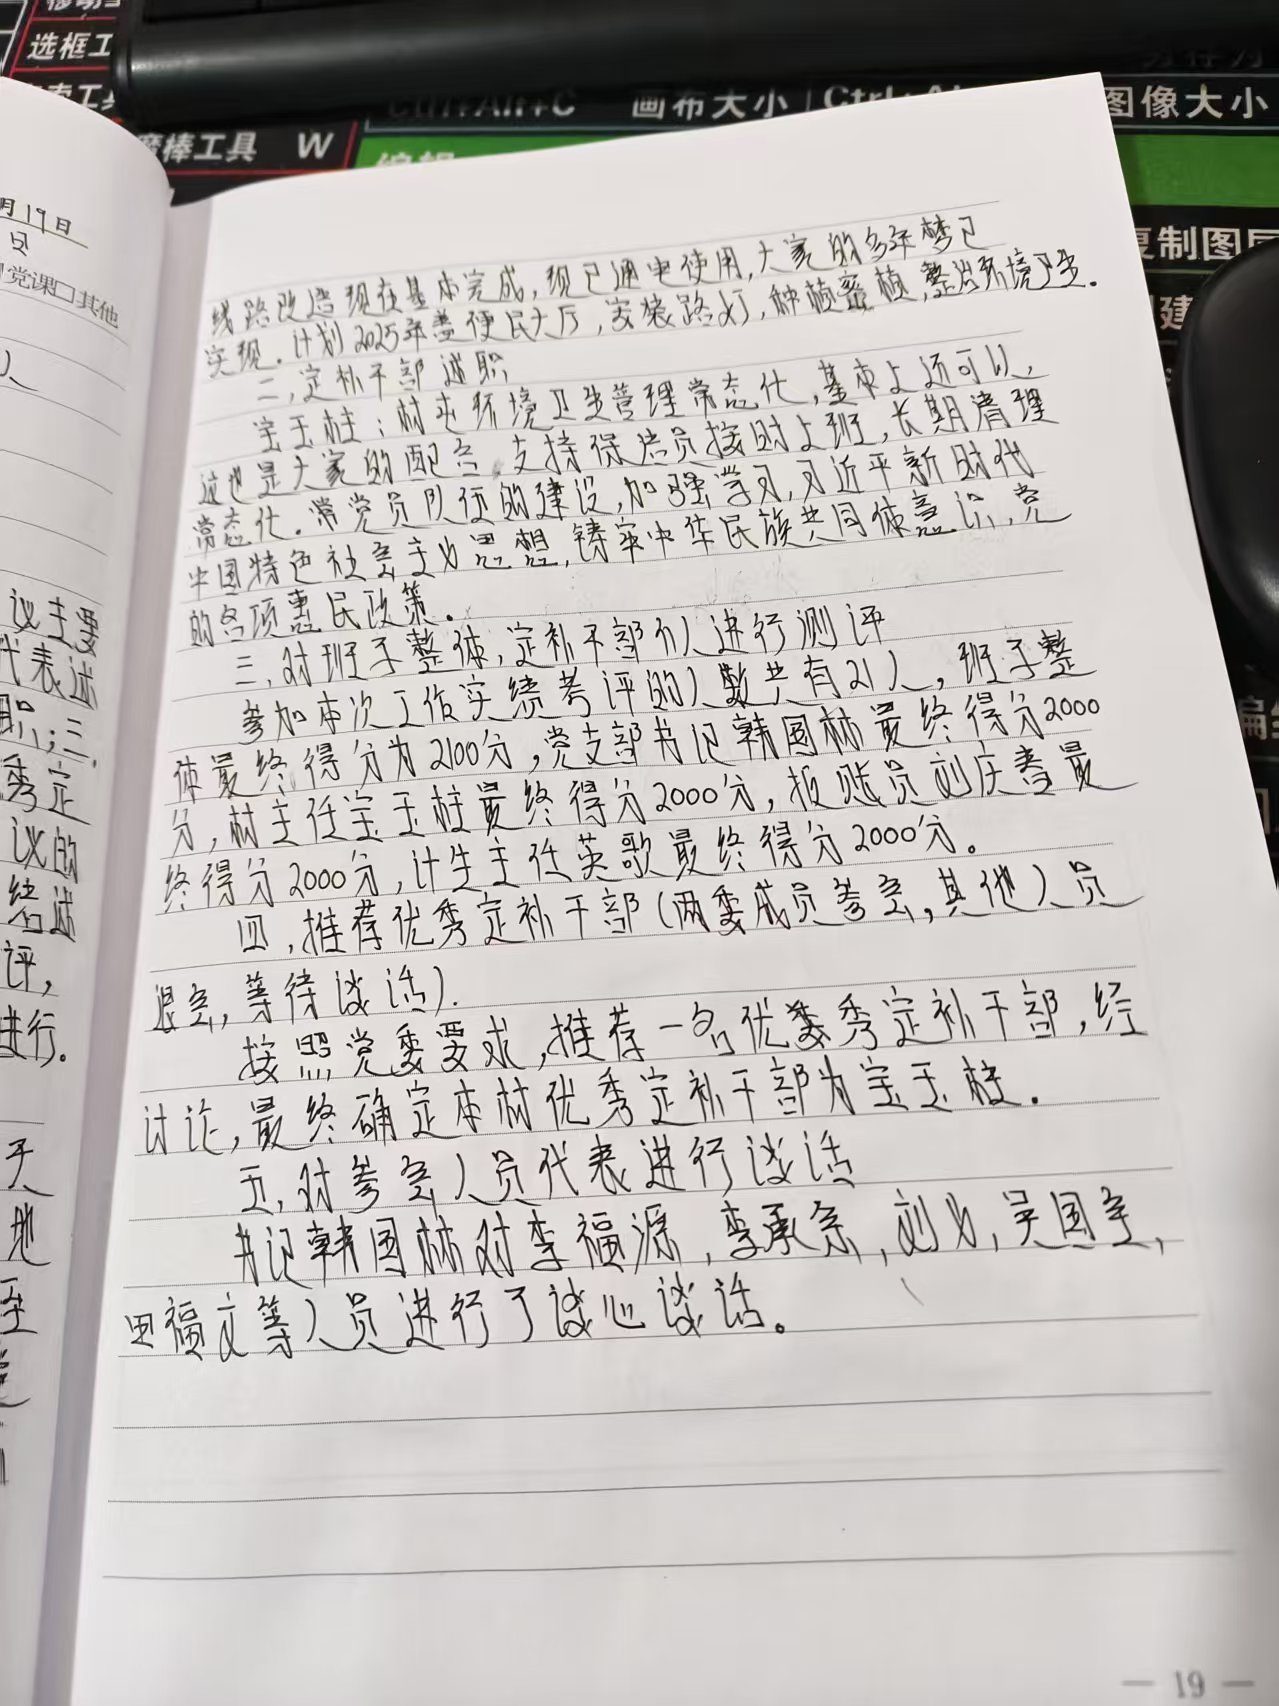 选框工
魔棒工具 W
Ctrl+Alt+C 画布大小
图像大小
复制图
月19日
党课□其他
议主要
代表述
职；三、
秀定
议的
绪述
评，
进行。
天
地
线路改造现在基本完成，现已通电使用，大家的多年梦已
实现。计划2025年盖便民大厅，安装路灯，种植密植，整治环境卫生。
二，定补干部述职
宝玉柱：村屯环境卫生管理常态化，基本上还可以，
这也是大家的配合 支持保洁员按时上班，长期清理
常态化。常党员队伍的建设，加强学习，习近平新时代
中国特色社会主义思想，铸牢中华民族共同体意识，党
的各项惠民政策。
三，对班子整体，定补干部个人进行测评
参加本次工作实绩考评的人数共有21人，班子整
体最终得分为2100分，党支部书记韩国林最终得分2000
分，村主任宝玉柱最终得分2000分，报账员刘庆春最
终得分2000分，计生主任英歌最终得分2000分。
四，推荐优秀定补干部（两委成员参会，其他人员
退会，等待谈话）.
按照党委要求，推荐一名优秀定补干部，经
讨论，最终确定本村优秀定补干部为宝玉柱.
五，对参会人员代表进行谈话
书记韩国林对李福源，李承余，刘义，吴国全，
田福文等人员进行了谈心谈话。
— 19 —